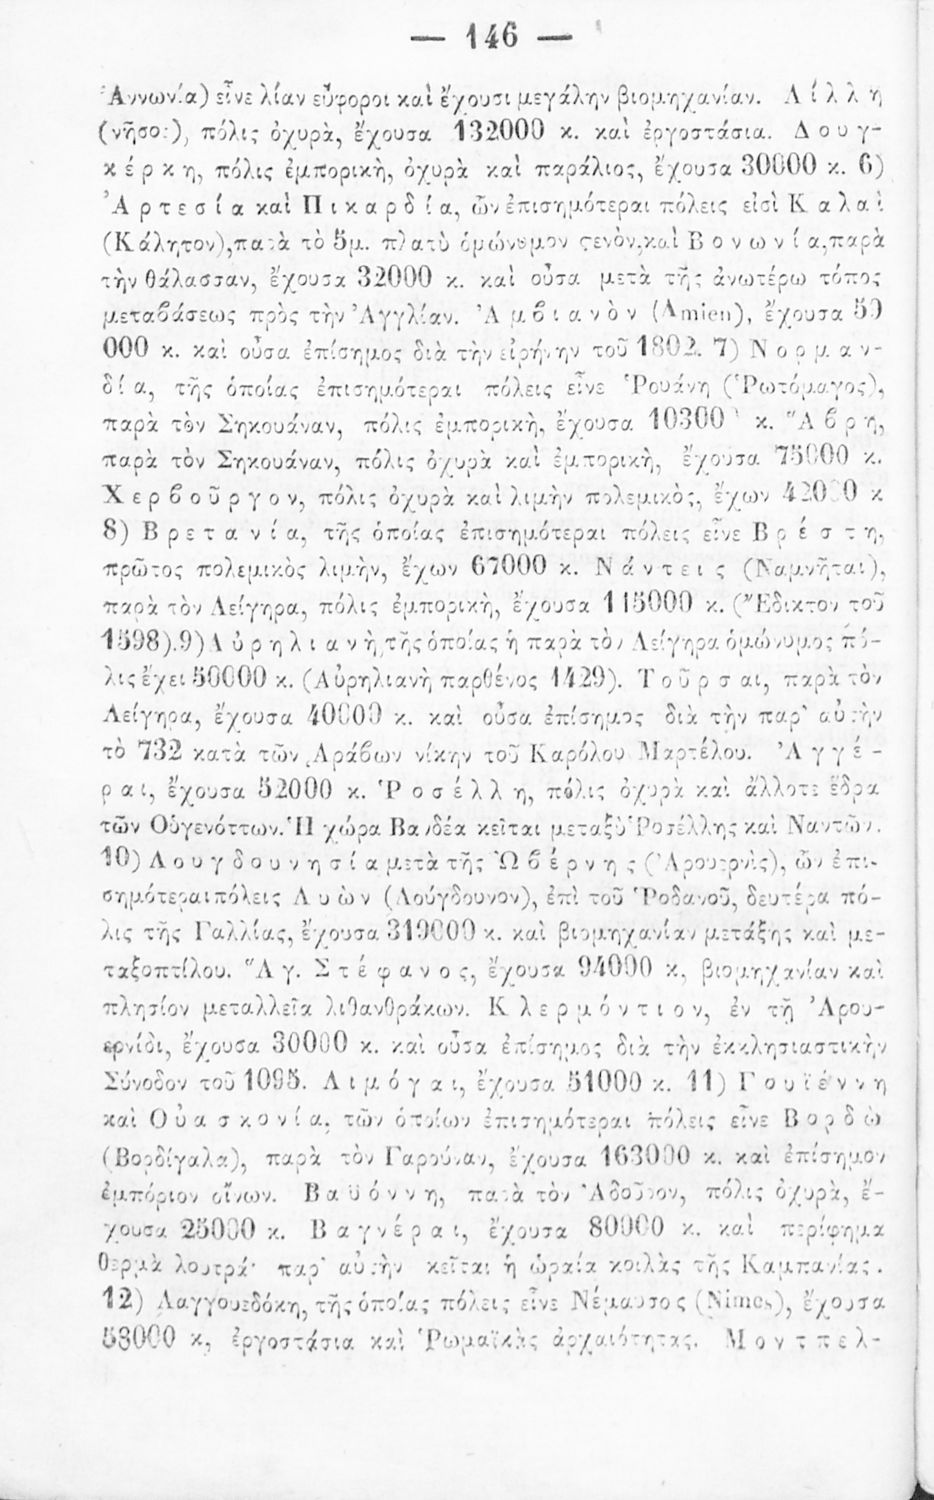 — 146 —
Ἀννωνία) εἶνε λίαν εὔφοροι καὶ ἔχουσι μεγάλην βιομηχανίαν. Λίλλη
(νῆσοι), πόλις ὀχυρὰ, ἔχουσα 132000 κ. καὶ ἐργοστάσια. Δουγ-
κέρκη, πόλις ἐμπορικὴ, ὀχυρὰ καὶ παράλιος, ἔχουσα 30000 κ. 6)
Ἀρτεσία καὶ Πικαρδία, ὧν ἐπισημότεραι πόλεις εἰσὶ Καλαὶ
(Κάλητον), παρὰ τὸ 5μ. πλατὺ ὁμώνυμον στενὸν, καὶ Βονωνία, παρὰ
τὴν θάλασσαν, ἔχουσα 32000 κ. καὶ οὖσα μετὰ τῆς ἀνωτέρω τόπος
μεταβάσεως πρὸς τὴν Ἀγγλίαν. Ἀμβιανὸν (Amien), ἔχουσα 50
000 κ. καὶ οὖσα ἐπίσημος διὰ τὴν εἰρήνην τοῦ 1802. 7) Νορμαν-
δία, τῆς ὁποίας ἐπισημότεραι πόλεις εἶνε Ῥουάνη (Ῥωτόμαγος),
παρὰ τὸν Σηκουάναν, πόλις ἐμπορικὴ, ἔχουσα 10300 κ. Ἅβρη,
παρὰ τὸν Σηκουάναν, πόλις ὀχυρὰ καὶ ἐμπορικὴ, ἔχουσα 75000 κ.
Χερβοῦργον, πόλις ὀχυρὰ καὶ λιμὴν πολεμικὸς, ἔχων 42000 κ
8) Βρετανία, τῆς ὁποίας ἐπισημότεραι πόλεις εἶνε Βρέστη,
πρῶτος πολεμικὸς λιμὴν, ἔχων 67000 κ. Νάντεις (Ναμνῆται),
παρὰ τὸν Λείγηρα, πόλις ἐμπορικὴ, ἔχουσα 115000 κ. (Ἔδικτον τοῦ
1598). 9) Αὐρηλιανὴ, τῆς ὁποίας ἡ παρὰ τὸν Λείγηρα ὁμώνυμος πό-
λις ἔχει 50000 κ. (Αὐρηλιανὴ παρθένος 1429). Τοῦρσαι, παρὰ τὸν
Λείγηρα, ἔχουσα 40000 κ. καὶ οὖσα ἐπίσημος διὰ τὴν παρ' αὐτὴν
τὸ 732 κατὰ τῶν Ἀράβων νίκην τοῦ Καρόλου Μαρτέλου. Ἀγγέ-
ραι, ἔχουσα 52000 κ. Ῥοσέλλη, πόλις ὀχυρὰ καὶ ἄλλοτε ἕδρα
τῶν Οὑγενόττων. Ἡ χώρα Βανδέα κεῖται μεταξὺ Ῥοσέλλης καὶ Ναντῶν.
10) Λουγδουνησία μετὰ τῆς Ὠβέρνης (Ἀρουερνὶς), ὧν ἐπι-
σημότεραι πόλεις Λυὼν (Λούγδουνον), ἐπὶ τοῦ Ῥοδανοῦ, δευτέρα πό-
λις τῆς Γαλλίας, ἔχουσα 319000 κ. καὶ βιομηχανίαν μετάξης καὶ με-
ταξοπτίλου. Ἅγ. Στέφανος, ἔχουσα 94000 κ, βιομηχανίαν καὶ
πλησίον μεταλλεῖα λιθανθράκων. Κλερμόντιον, ἐν τῇ Ἀρου-
ερνίδι, ἔχουσα 30000 κ. καὶ οὖσα ἐπίσημος διὰ τὴν ἐκκλησιαστικὴν
Σύνοδον τοῦ 1095. Λιμόγαι, ἔχουσα 51000 κ. 11) Γουϊέννη
καὶ Οὐασκονία, τῶν ὁποίων ἐπισημότεραι πόλεις εἶνε Βορδὼ
(Βορδίγαλα), παρὰ τὸν Γαρούναν, ἔχουσα 163000 κ. καὶ ἐπίσημον
ἐμπόριον οἴνων. Βαϋόννη, παρὰ τὸν Ἀδοῦρον, πόλις ὀχυρὰ, ἔ-
χουσα 25000 κ. Βαγνέραι, ἔχουσα 80000 κ. καὶ περίφημα
θερμὰ λουτρά· παρ' αὐτὴν κεῖται ἡ ὡραία κοιλὰς τῆς Καμπανίας.
12) Λαγγουεδόκη, τῆς ὁποίας πόλεις εἶνε Νέμαυσος (Nimes), ἔχουσα
53000 κ, ἐργοστάσια καὶ Ῥωμαϊκὰς ἀρχαιότητας. Μοντπελ-